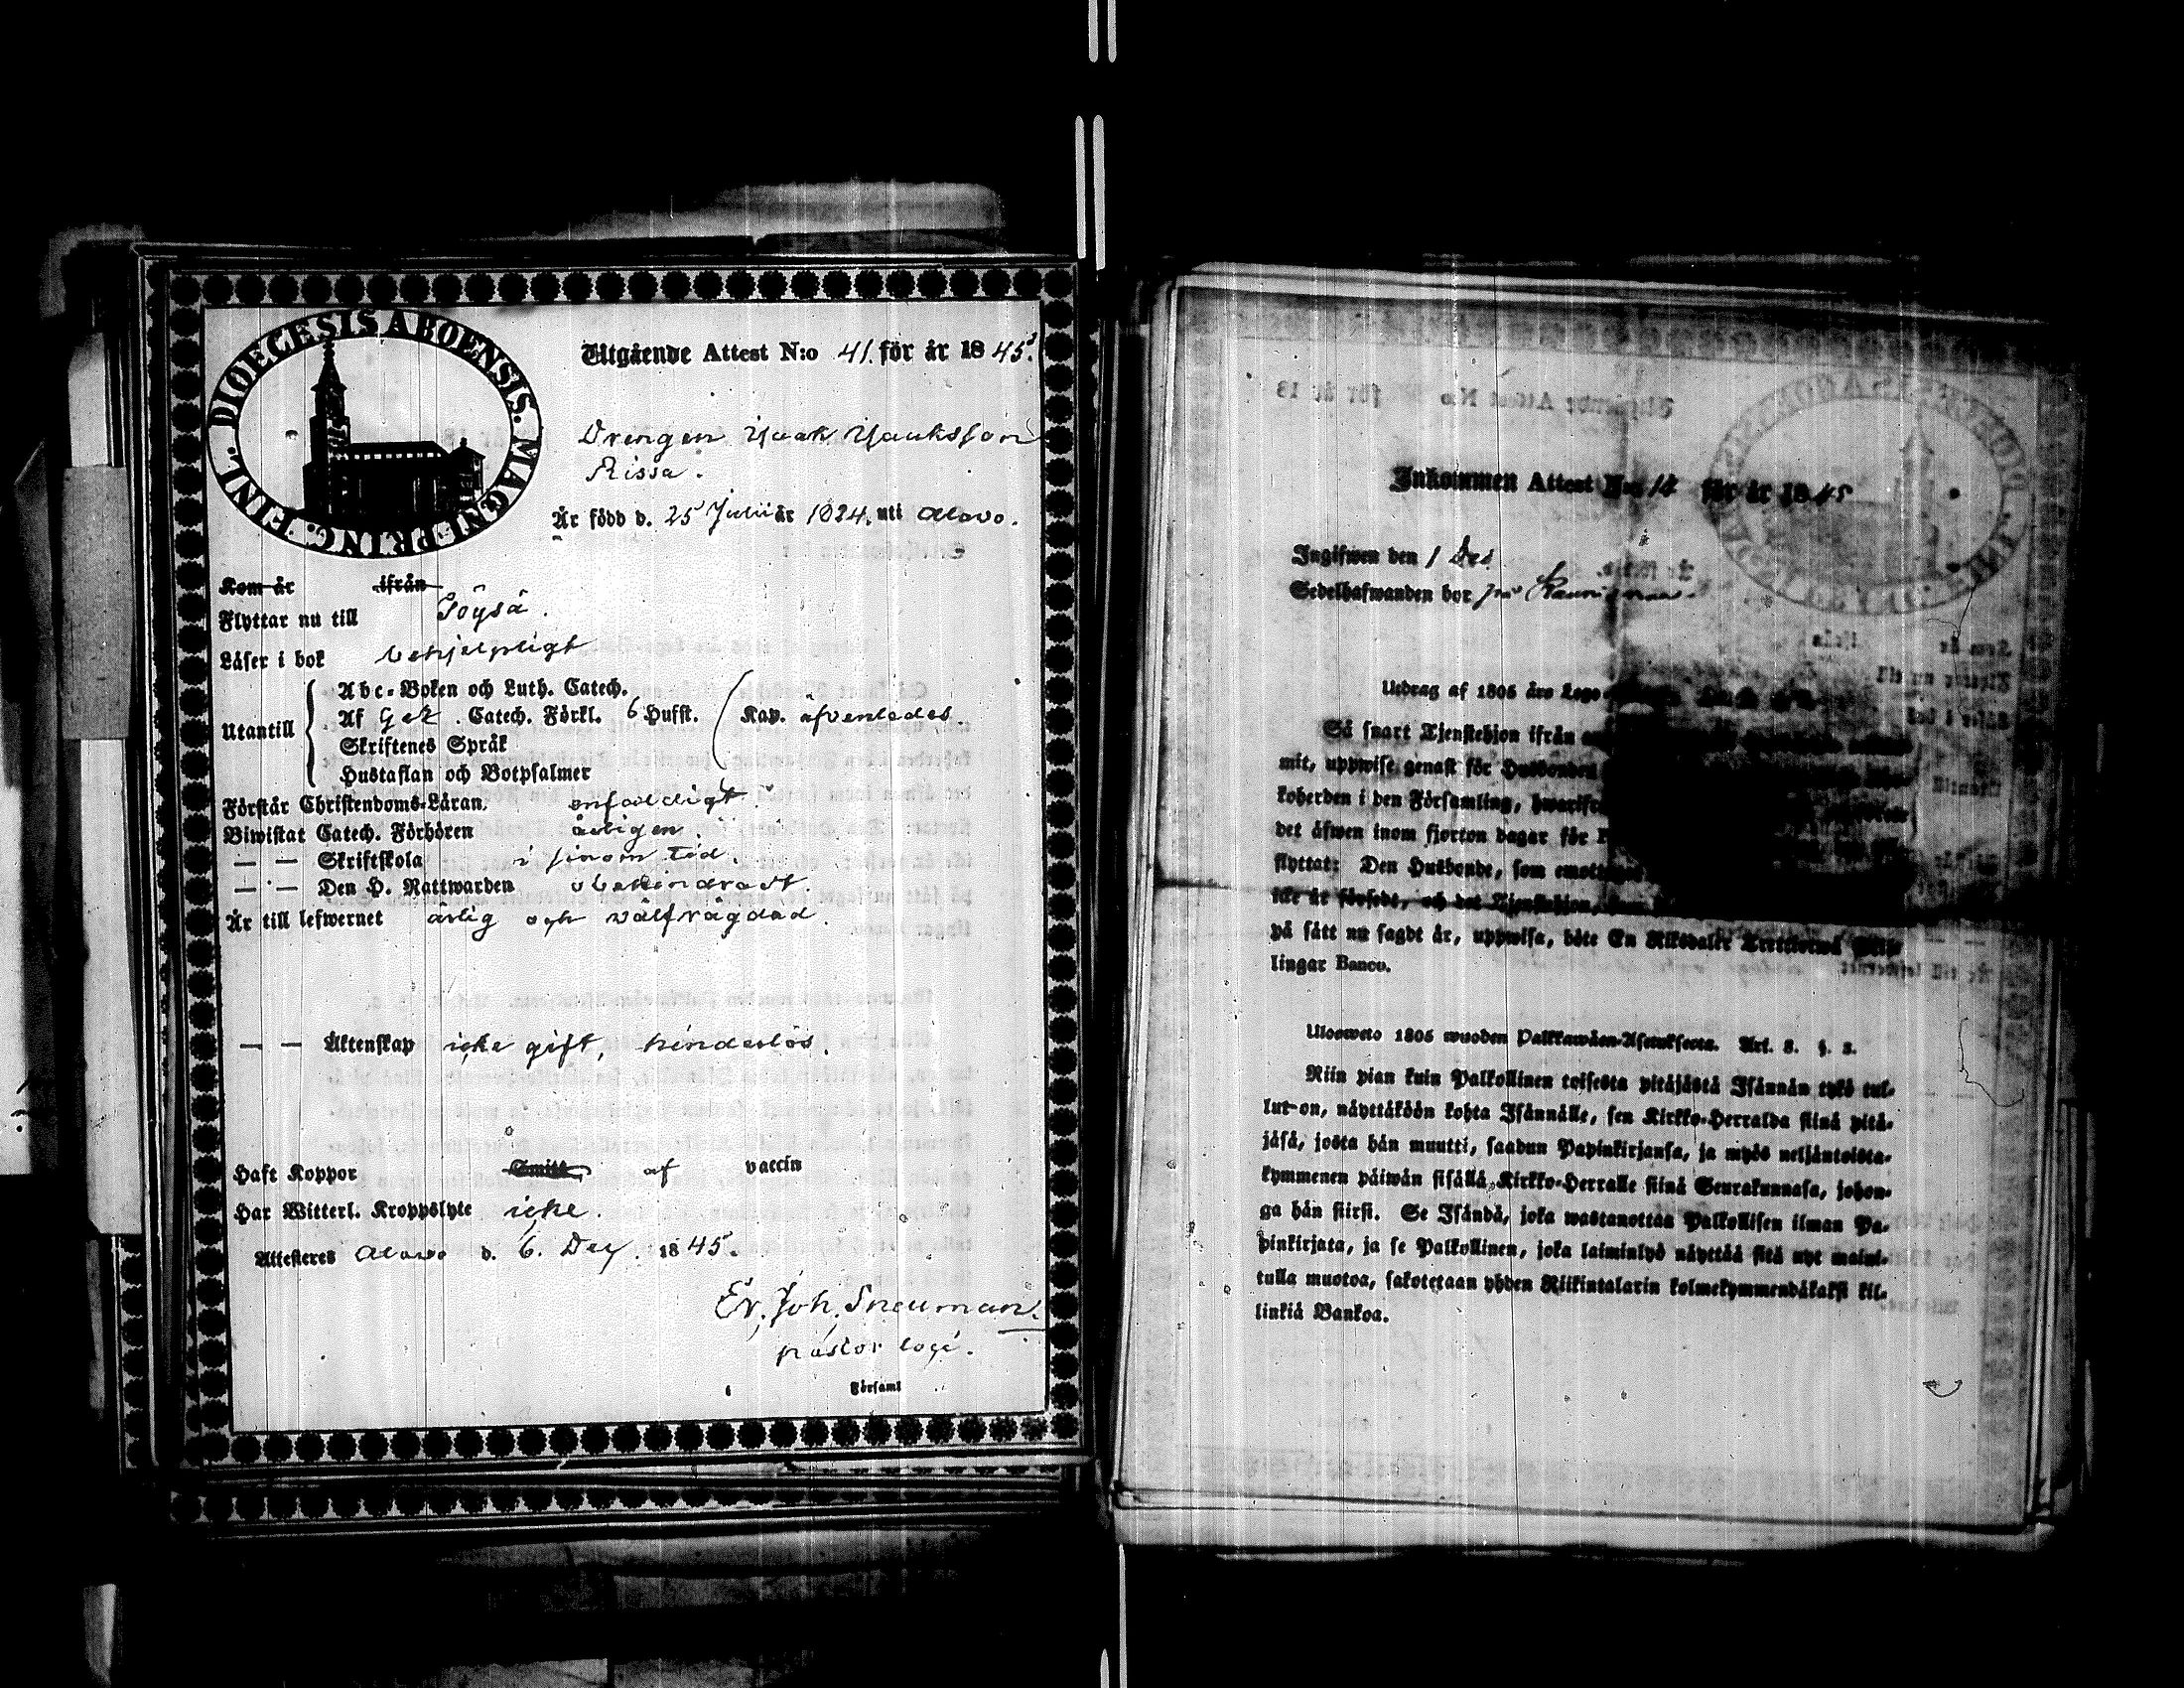 DIOECESIS ABOENSIS. MAGNI PRINC. FINL.
Utgående Attest N:o 41. för år 1845.
Drengen Isaak Isaksson
Rissa.
Är född d. 25 Julii år 1824. uti Alavo.
Kom år ifrån
Flyttar nu till Töysä.
Läser i bok behjelpligt
Utantill
Abc-Boken och Luth. Catech.
Af Catech. Förkl. 6 Hufst. Kap. afvenledes.
Skriftenes Språk
Hustaflan och Botpsalmer
Förstår Christendoms-Läran, enfaldigt
Biwistat Catech. Förhören årligen.
— — Skriftskola i sinom tid.
— — Den H. Nattwarden obehindradt.
Är till lefwernet ärlig och välfrägdad.
— — Äktenskap icke gift, hinderlös.
Haft Koppor Smitt af vaccin
Har Witterl. Kroppslyte icke.
Attesteres Alavo d. 6. Dec. 1845.
Er. Joh. Sneuman.
pastor loci.
i Församl
Inkommen Attest N:o 14 för år 1845
Ingifwen den 1 Dec
Sedelhafwanden bor på
Utdrag af 1805 års Lego
Så snart Tjenstehjon ifrån
mit, uppwise genast för Husbonden
koherden i den Församling, hwarifrå
det äfwen inom fjorton dagar för
flyttat: Den Husbonde, som emottager
icke är försedt, och det Tjenstehjon,
på sätt nu sagdt är, uppwisa, böte En Riksdaler Trettiotwå Skil-
lingar Banco.
Uloswето 1805 wuoden Palkkawäen-Asetuksesta. Art. 8. §. 3.
Niin pian kuin Palkollinen toisesta pitäjästä Isännän tykö tul-
lut on, näyttäköön kohta Isännälle, sen Kirkko-Herralda siinä pitä-
jäsä, josta hän muutti, saadun Papinkirjansa, ja myös neljäntoista-
kymmenen päiwän sisällä Kirkko-Herralle siinä Seurakunnasa, johon-
ga hän siirsi. Se Isändä, joka wastanottaa Palkollisen ilman Pa-
pinkirjata, ja se Palkollinen, joka laiminlyö näyttää sitä nyt maini-
tulla muotoa, sakotetaan yhden Riikintalarin kolmekymmendäkaksi kil-
linkiä Bankoa.